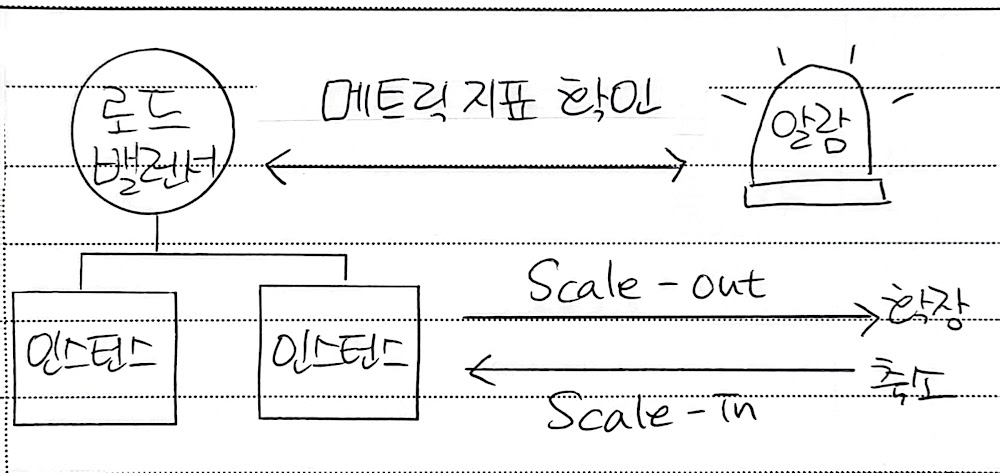 로드
밸런서
메트릭 지표 확인
알람
인스턴스
인스턴스
Scale-out
확장
축소
Scale-In